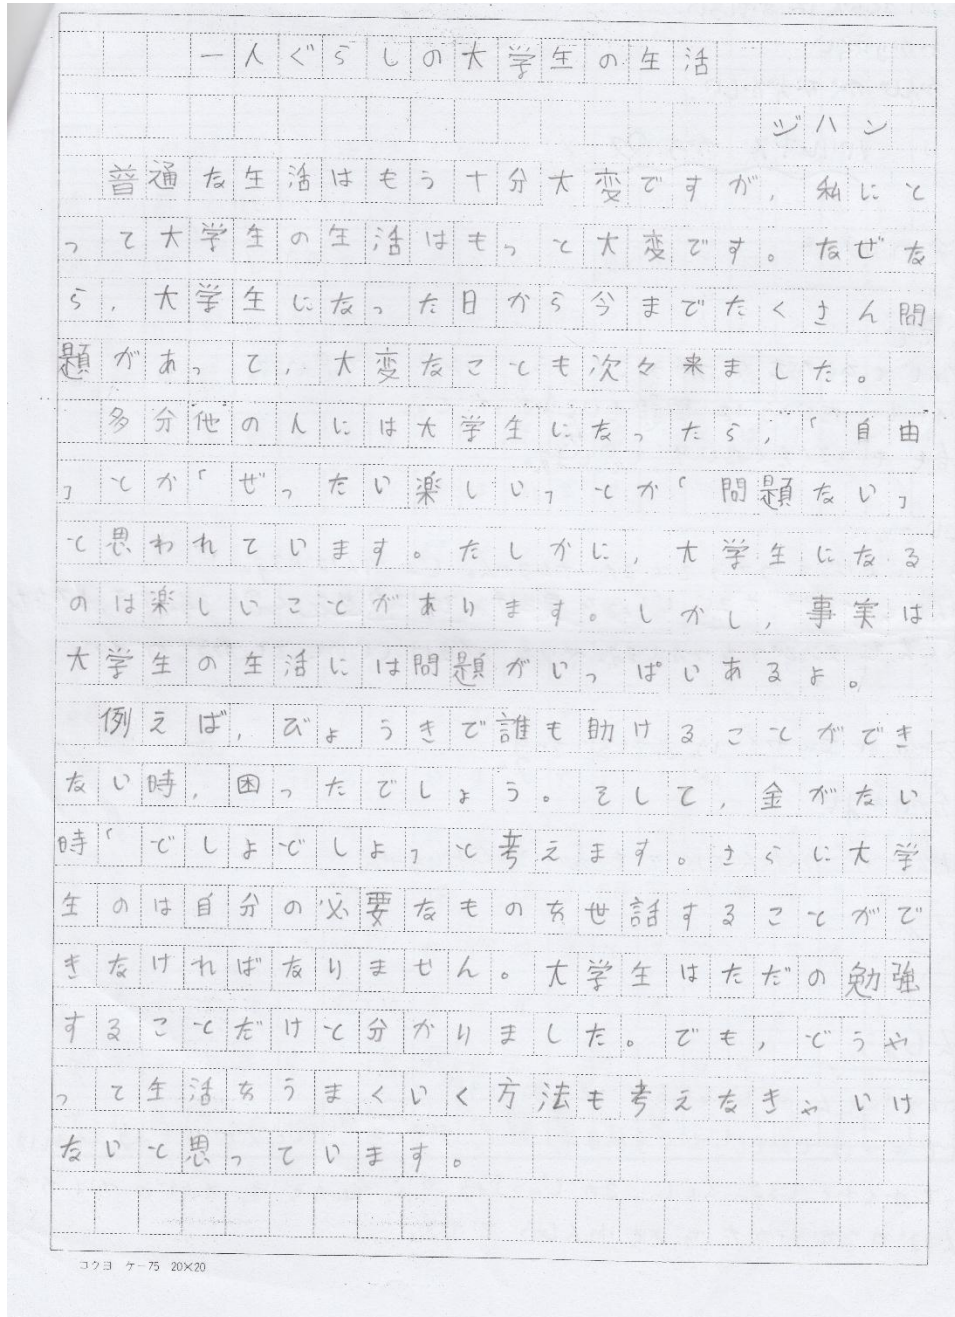 一人ぐらしの大学生の生活
ジハン
普通な生活はもう十分大変ですが,私にと
って大学生の生活はもっと大変です。なぜな
ら,大学生になった日から今までたくさん問
題があって,大変なことも次々来ました。
多分他の人には大学生になったら,「自由
」とか「ぜったい楽しい」とか「問題ない」
と思われています。たしかに,大学生になる
のは楽しいことがあります。しかし,事実は
大学生の生活には問題がいっぱいあるよ。
例えば,びょうきで誰も助けることができ
ない時,困ったでしょう。そして,金がない
時「どしよどしよ」と考えます。さらに大学
生のは自分の必要なものを世話することがで
きなければなりません。大学生はただの勉強
することだけと分かりました。でも,どうや
って生活をうまくいく方法も考えなきゃいけ
ないと思っています。
コクヨ ケー75 20×20